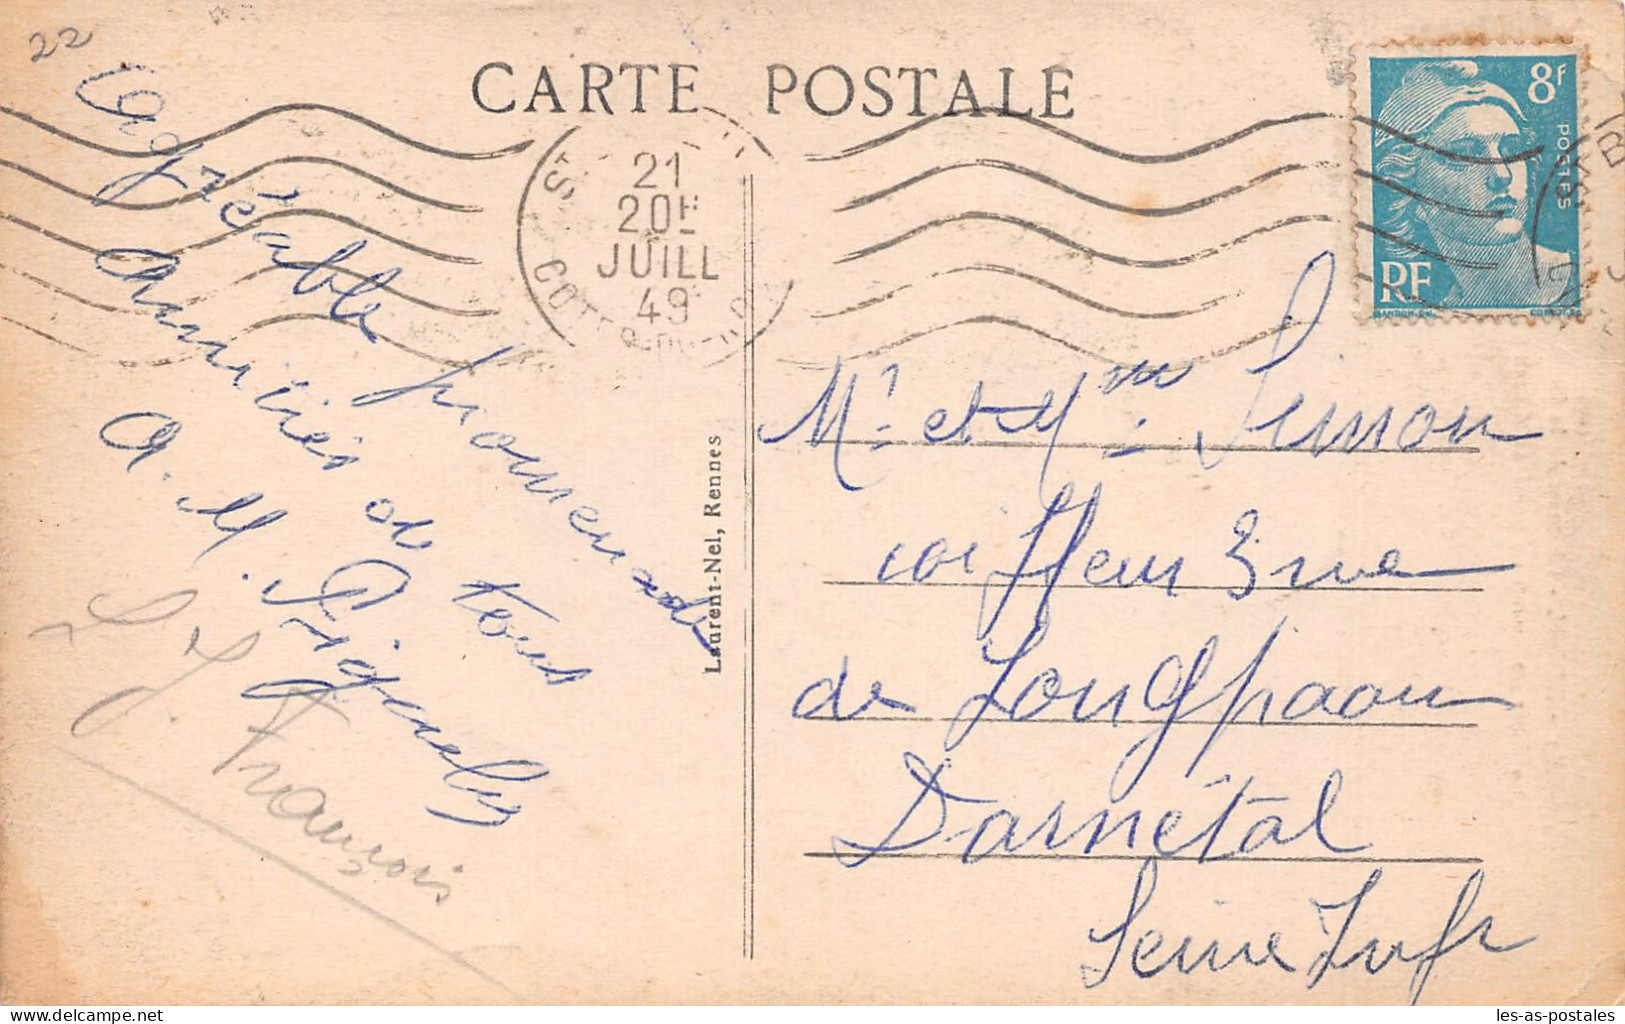 22
CARTE POSTALE
Agréable promenade
Amitiés de tous
A. M.
François
21
20H
JUILL
49
8F
POSTES
RF
GANDON DEL.
Laurent-Nel, Rennes
Mr et Mme Simon
coiffeur 3 rue
de Longpaon
Darnétal
Seine Infre
les-as-postales